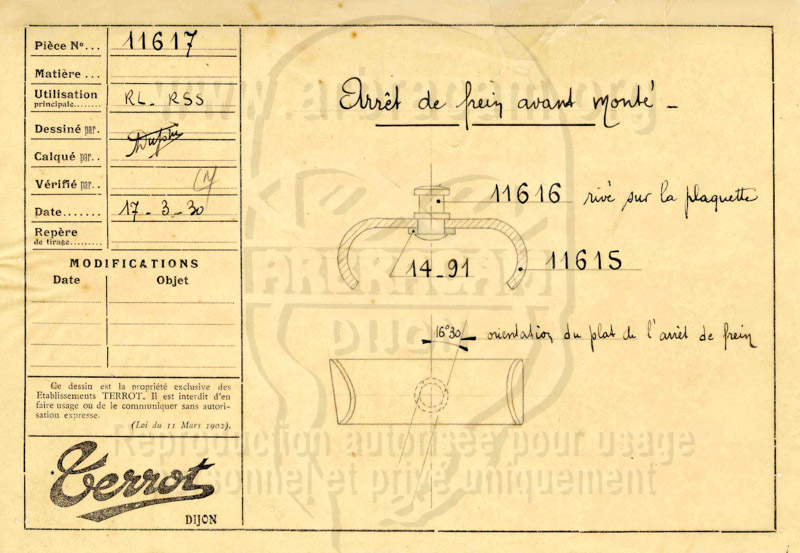 Pièce Nº... 11617
Matière...
Utilisation
principale........ RL - RSS
Dessiné par.
Calqué par..
Vérifié par..
Date....... 17 - 3 - 30
Repère
de tirage.........
MODIFICATIONS
Date Objet
Ce dessin est la propriété exclusive des
Etablissements TERROT. Il est interdit d'en
faire usage ou de le communiquer sans autori-
sation expresse.
(Loi du 11 Mars 1902).
Terrot
DIJON
Arrêt de frein avant monté -
11616 rivé sur la plaquette
14-91
11615
16°30 orientation du plat de l'arrêt de frein
www.arbracam.org
ARBRACAM
DIJON
Reproduction autorisée pour usage
personnel et privé uniquement